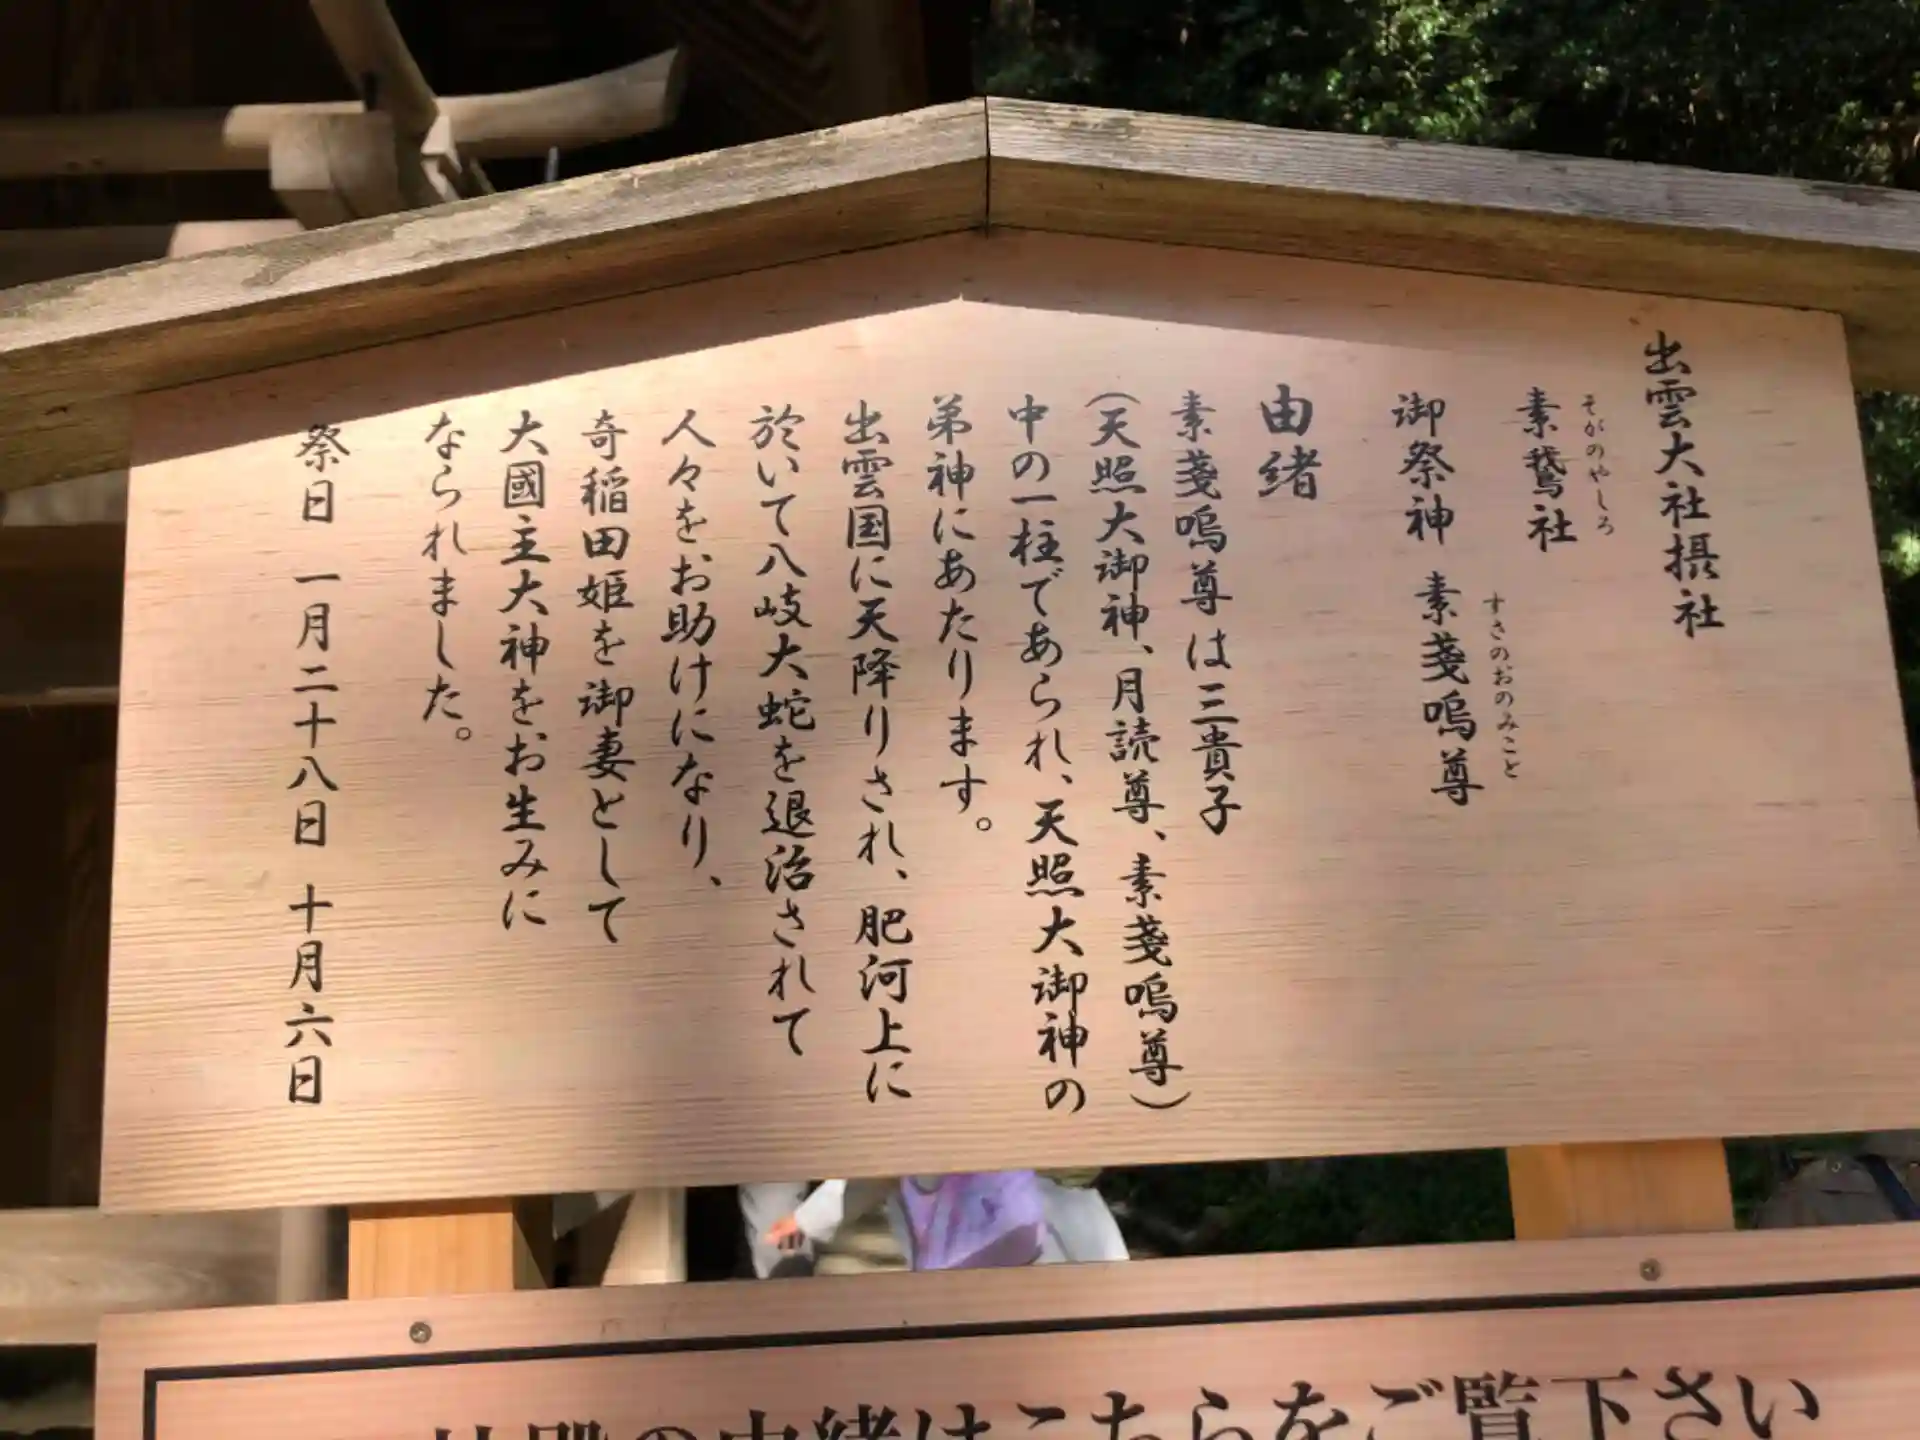 出雲大社摂社
そがのやしろ
素鵞社
すさのおのみこと
御祭神 素戔嗚尊
由緒
素戔嗚尊は三貴子
(天照大御神、月読尊、素戔嗚尊)
中の一柱であられ、天照大御神の
弟神にあたります。
出雲国に天降りされ、肥河上に
於いて八岐大蛇を退治されて
人々をお助けになり、
奇稲田姫を御妻として
大國主大神をお生みに
なられました。
祭日 一月二十八日 十月六日
の由緒はこちらをご覧下さい